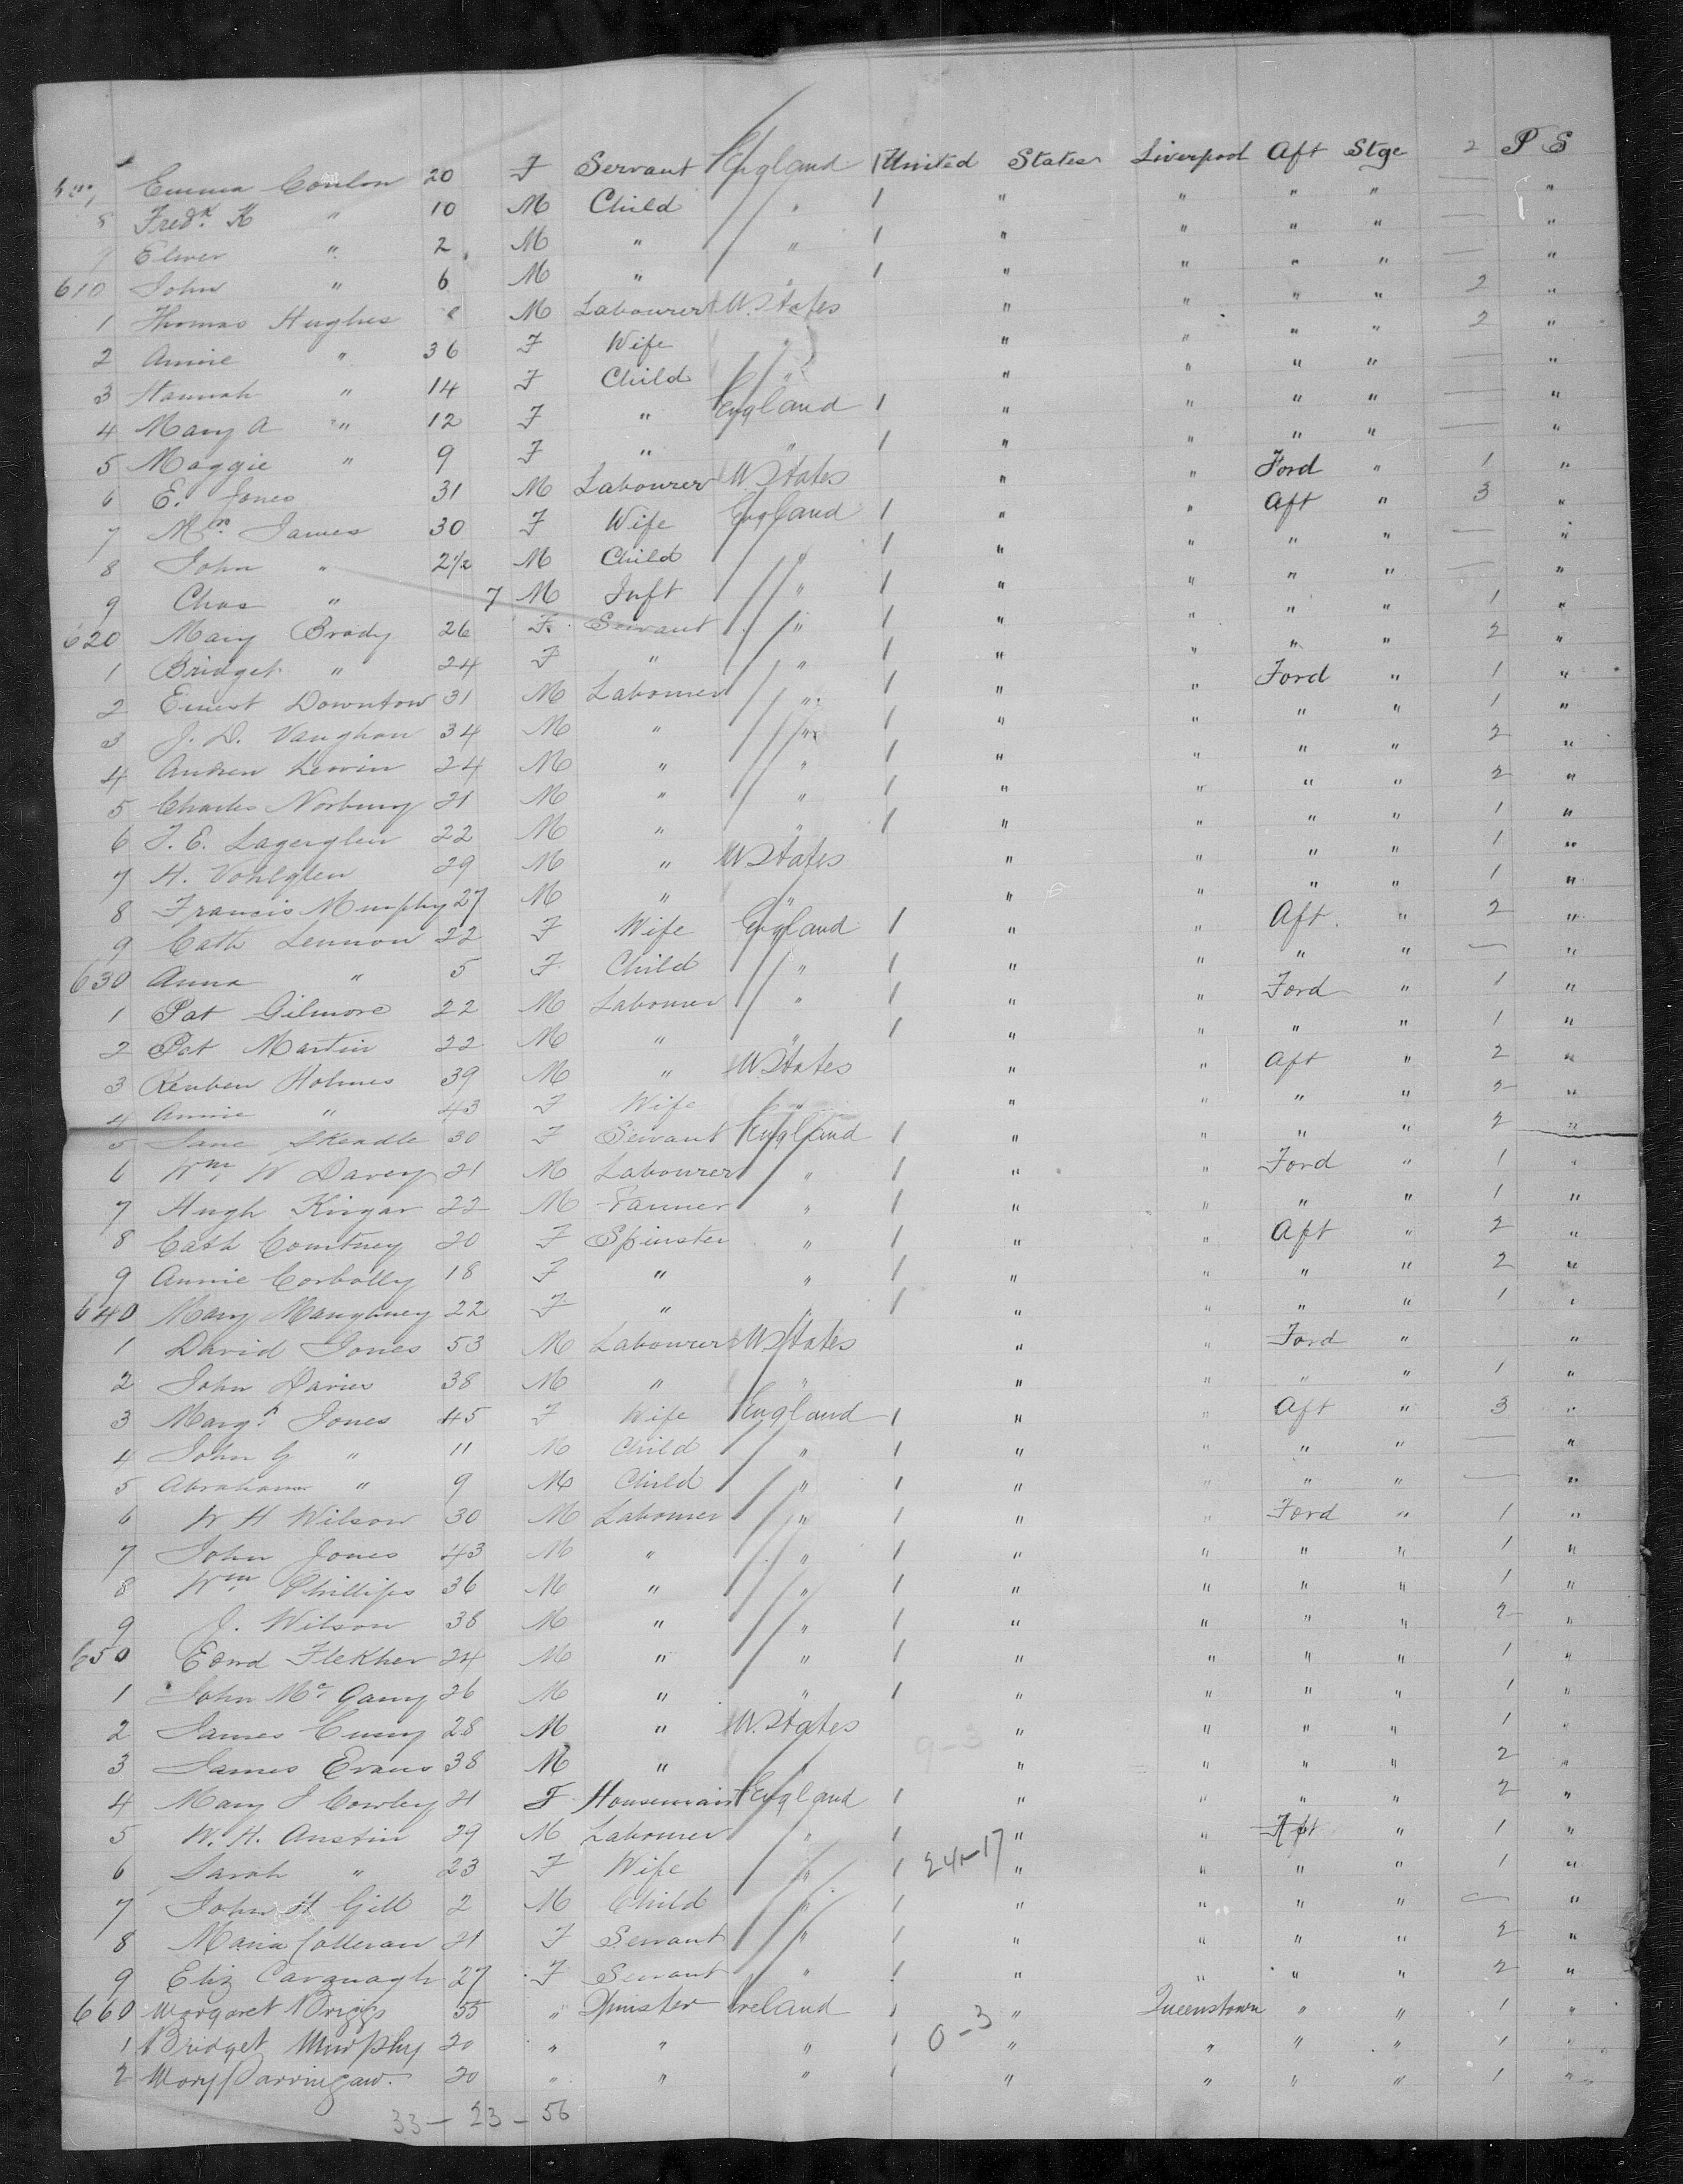 Emma Conlon 20 F Servant England 1 United States Liverpool Aft Stge 2 P S
8 Fredk. K " 10 M Child " 1 " " " " — "
9 Elmer " 2 M " " 1 " " " " — "
610 John " 6 M " " 1 " " " " — "
1 Thomas Hughes M Labourer U. States " " " " 2 "
2 Annie " 36 F Wife " " " " " 2 "
3 Hannah " 14 F Child " " " " " — "
4 Mary A " 12 F " England 1 " " " " — "
5 Maggie " 9 F " " 1 " " " " — "
6 E. Jones 31 M Labourer U States " " Ford " 1 "
7 Mrs James 30 F Wife England 1 " " Aft " 3 "
8 John " 2 1/2 M Child " 1 " " " " — "
9 Chas " 7 M Inft " 1 " " " " — "
620 Mary Brady 26 F Servant " 1 " " " " 1 "
1 Bridget " 24 F " " 1 " " " " 2 "
2 Ernest Downton 31 M Labourer " 1 " " Ford " 1 "
3 J. D. Vaughan 34 M " " " " " " 1 "
4 Andrew Lewin 24 M " " 1 " " " " 2 "
5 Charles Norbury 21 M " " 1 " " " " 2 "
6 J. E. Lagerglen 22 M " " 1 " " " " 1 "
7 H. Vohlglen 29 M " U States " " " " 1 "
8 Francis Murphy 27 M " " " " " " 1 "
9 Cath Lennon 22 F Wife England 1 " " Aft. " 2 "
630 Anna " 5 F Child " 1 " " " " — "
1 Pat Gilmore 22 M Labourer " 1 " " Ford " 1 "
2 Pat Martin 22 M " " 1 " " " " 1 "
3 Reuben Holmes 39 M " U. States " " Aft " 2 "
4 Annie " 43 F Wife " " " " " 2 "
5 Jane Skeadle 30 F Servant England 1 " " " " 2 "
6 Wm W Davey 21 M Labourer " 1 " " Ford " 1 "
7 Hugh Kirgan 22 M Farmer " 1 " " " " 1 "
8 Cath Courtney 20 F Spinster " 1 " " Aft " 2 "
9 Annie Corbally 18 F " " 1 " " " " 2 "
640 Mary Maughney 22 F " " 1 " " " " 1 "
1 David Jones 53 M Labourer U. States " " Ford " "
2 John Davies 38 M " " " " " " 1 "
3 Margt. Jones 45 F Wife England 1 " " Aft " 3 "
4 John G " 11 M Child " 1 " " " " — "
5 Abraham " 9 M Child " 1 " " " " — "
6 W H Wilson 30 M Labourer " 1 " " Ford " 1 "
7 John Jones 43 M " " 1 " " " " 1 "
8 Wm Phillips 36 M " " 1 " " " " 1 "
9 J. Wilson 38 M " " 1 " " " " 2 "
650 Edwd Flekher 24 M " " 1 " " " " 1 "
1 John Mc Gany 26 M " " 1 " " " " 1 "
2 James Cuny 28 M " U. States " " " " 1 "
9-3
3 James Evans 38 M " " " " " " 2 "
4 Mary J Cowley 21 F Housemaid England 1 " " " " 2 "
5 W. H. Austin 29 M Labourer " 1 " " Aft " 1 "
6 Sarah " 23 F Wife " 1 24-17 " " " " 1 "
7 John H Gill 2 M Child " 1 " " " " — "
8 Maria Colleran 21 F Servant " 1 " " " " 2 "
9 Eliz Cavanagh 27 F Servant " 1 " " " " 2 "
660 Margaret Briggs 55 " Spinster Ireland 1 " Queenstown " " 1 "
1 Bridget Murphy 20 " " " 1 0-3 " " " " 1 "
2 Mary 20 " " " 1 " " " " 1 "
33 - 23 - 56